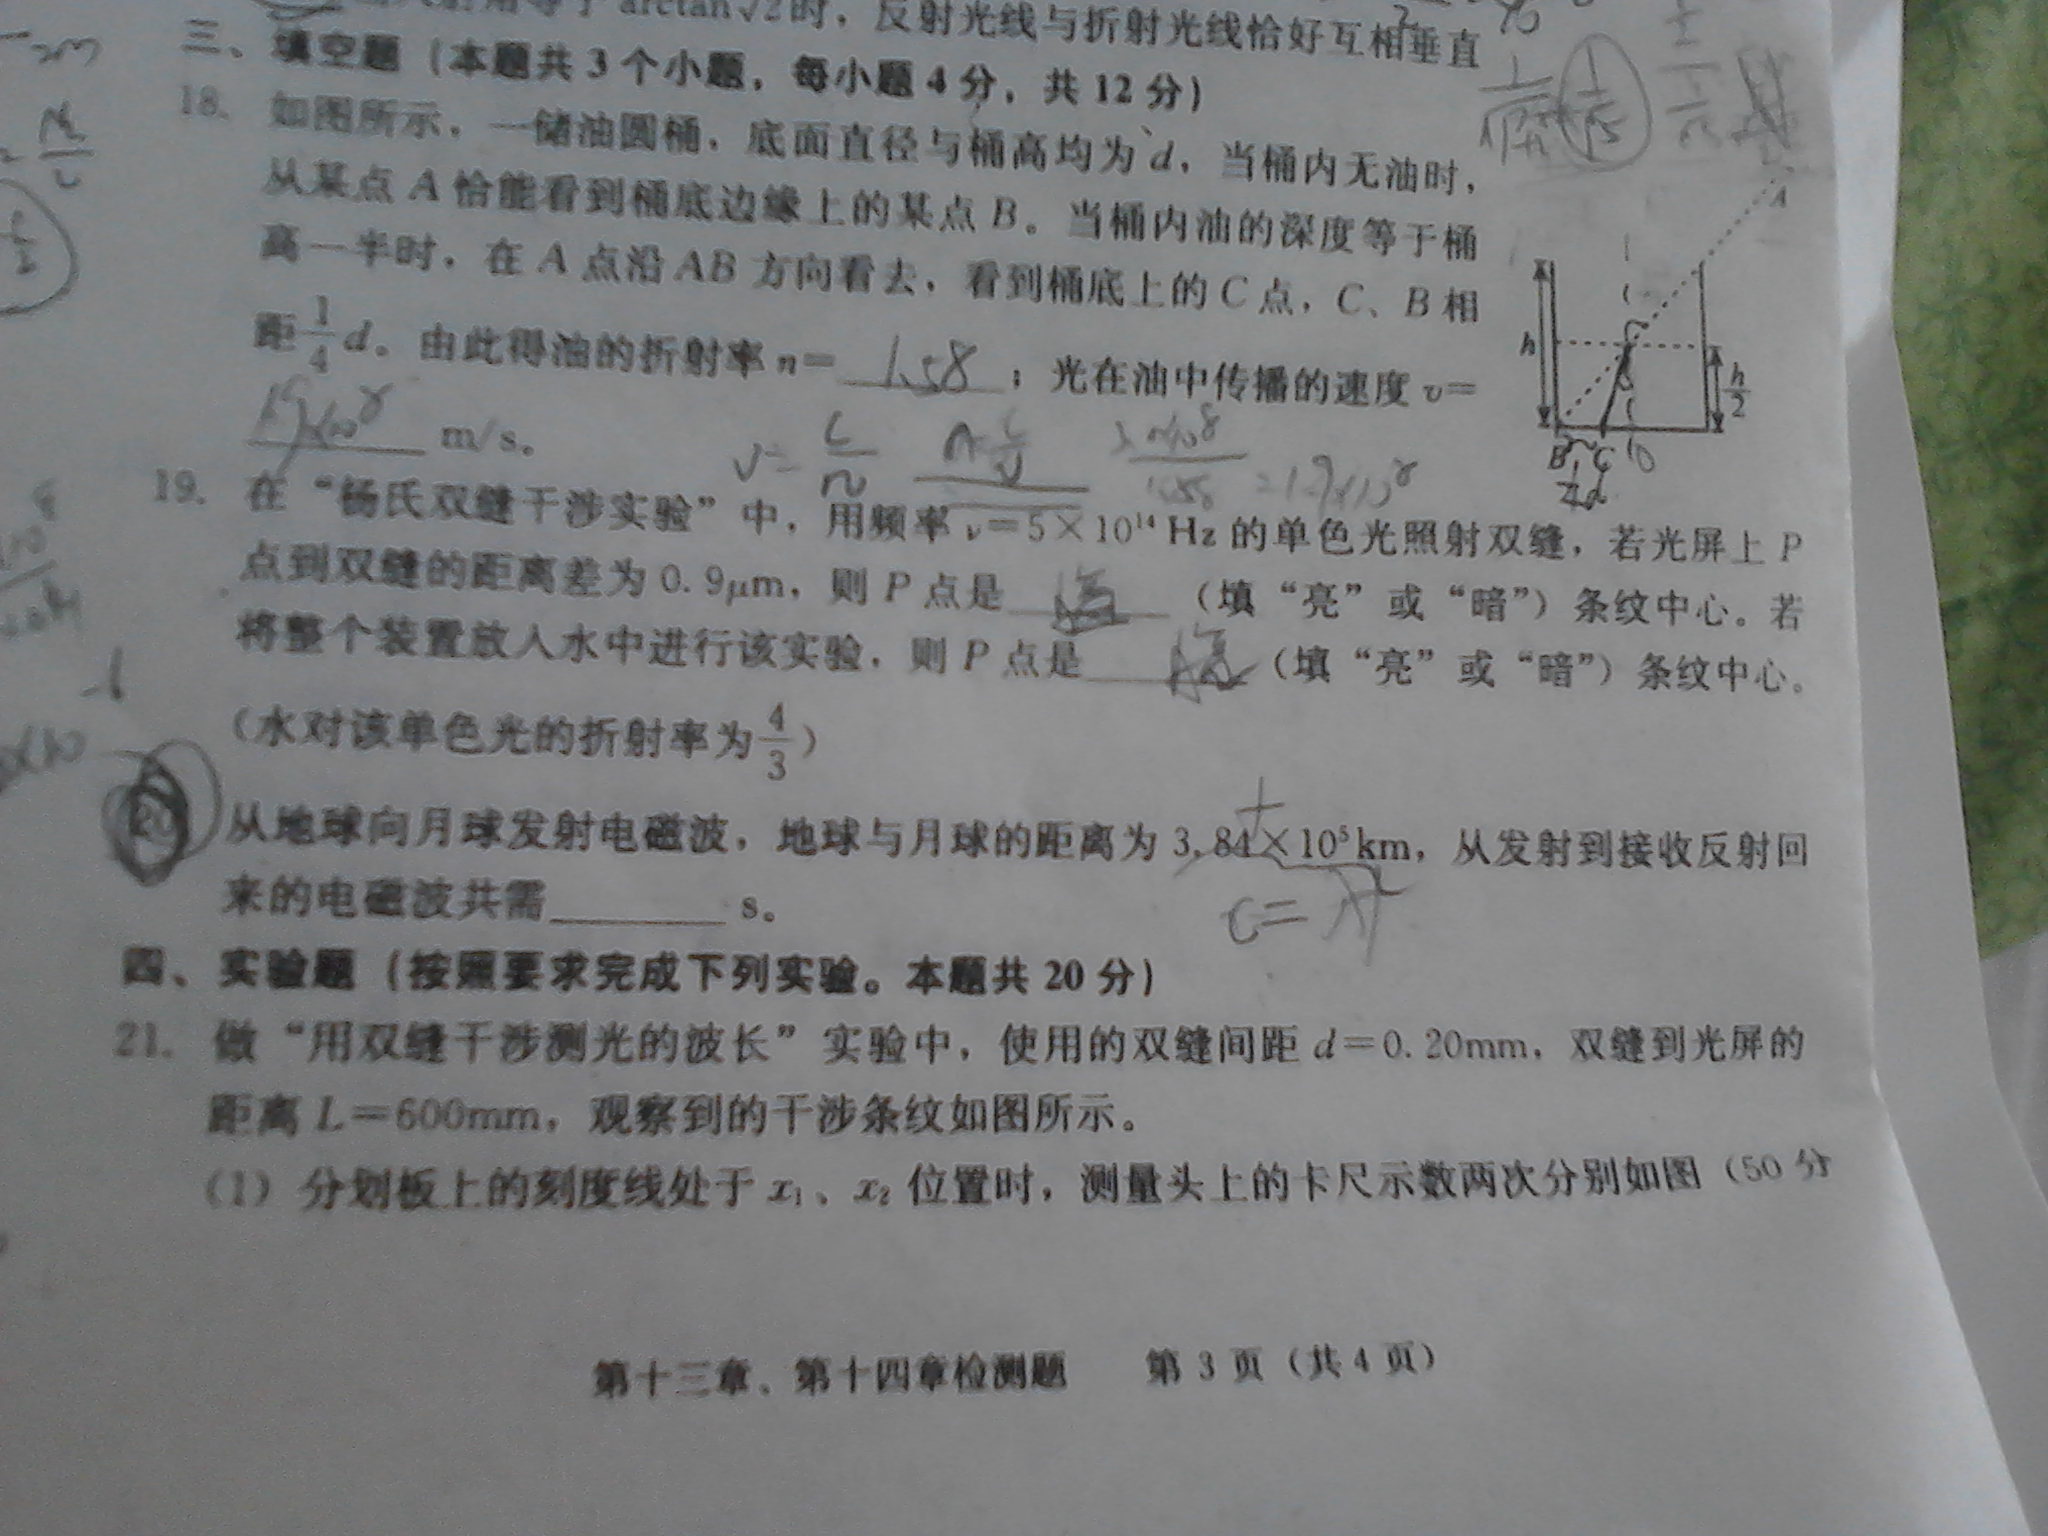 时，反射光线与折射光线恰好互相垂直
三、填空题（本题共3个小题，每小题4分，共12分）
18. 如图所示，一储油圆桶，底面直径与桶高均为d，当桶内无油时，
从某点A恰能看到桶底边缘上的某点B。当桶内油的深度等于桶
高一半时，在A点沿AB方向看去，看到桶底上的C点，C、B相
距1/4 d。由此得油的折射率n=1.58；光在油中传播的速度v=
1.9×10⁸ m/s。
A
h
h/2
B C
1/4 d
v= c/n n= c/v =1.9×10⁸
19. 在“杨氏双缝干涉实验”中，用频率ν=5×10¹⁴Hz的单色光照射双缝，若光屏上P
点到双缝的距离差为0.9μm，则P点是 （填“亮”或“暗”）条纹中心。若
将整个装置放入水中进行该实验，则P点是 （填“亮”或“暗”）条纹中心。
（水对该单色光的折射率为4/3）
20 从地球向月球发射电磁波，地球与月球的距离为3.84×10⁵km，从发射到接收反射回
来的电磁波共需 s。
四、实验题（按照要求完成下列实验。本题共20分）
21. 做“用双缝干涉测光的波长”实验中，使用的双缝间距d=0.20mm，双缝到光屏的
距离L=600mm，观察到的干涉条纹如图所示。
（1）分划板上的刻度线处于x₁、x₂位置时，测量头上的卡尺示数两次分别如图（50分
第十三章、第十四章检测题 第3页（共4页）